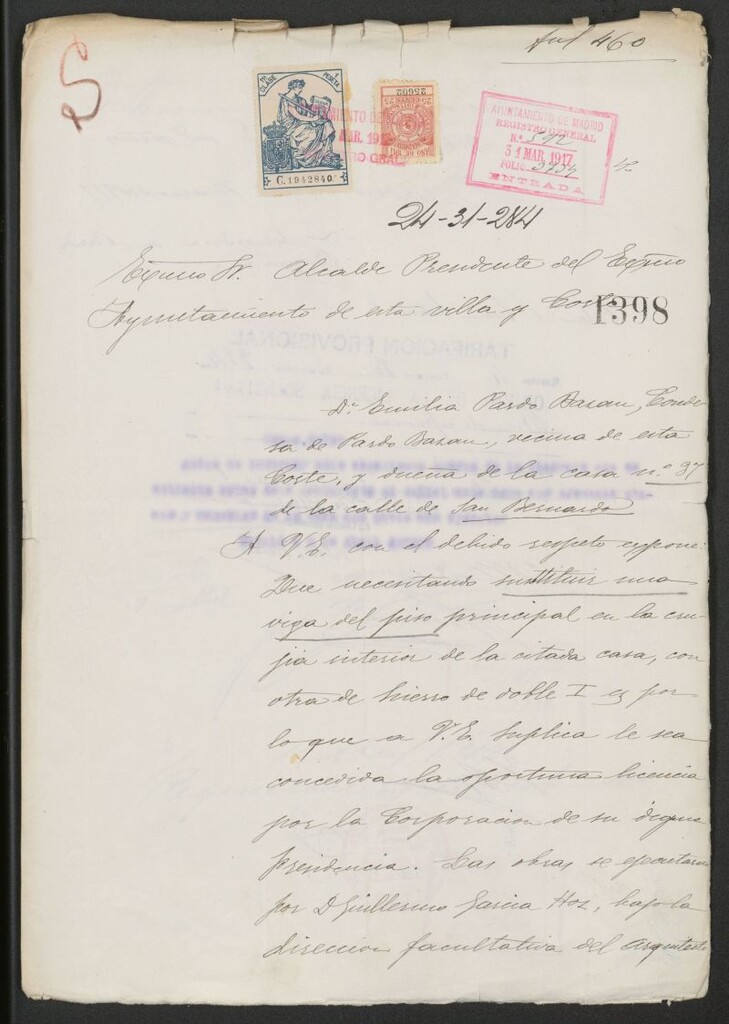 S
24-31-284
11ª CLASE 1 PESETA
C.1942840
25602
AYUNTAMIENTO DE MADRID
REGISTRO GENERAL
N.º 592
31 MAR. 1917
FOLIO
ENTRADA
Excmo Sr. Alcalde Presidente del Excmo
Ayuntamiento de esta villa y Corte
1398
TARIFACION PROVISIONAL
Dª Emilia Pardo Bazan, Conde-
sa de Pardo Bazan, vecina de esta
Corte, y dueña de la casa nº 37
de la calle de San Bernardo
A V.E. con el debido respeto expone:
Que necesitando sustituir una
viga del piso principal en la cru-
jia interior de la citada casa, con
otra de hierro de doble I es por
lo que a V.E. Suplica le sea
concedida la oportuna licencia
por la Corporacion de su digna
presidencia. Las obras se ejecutaran
por D Guillermo Garcia Hoz, bajo la
direccion facultativa del arquitecto